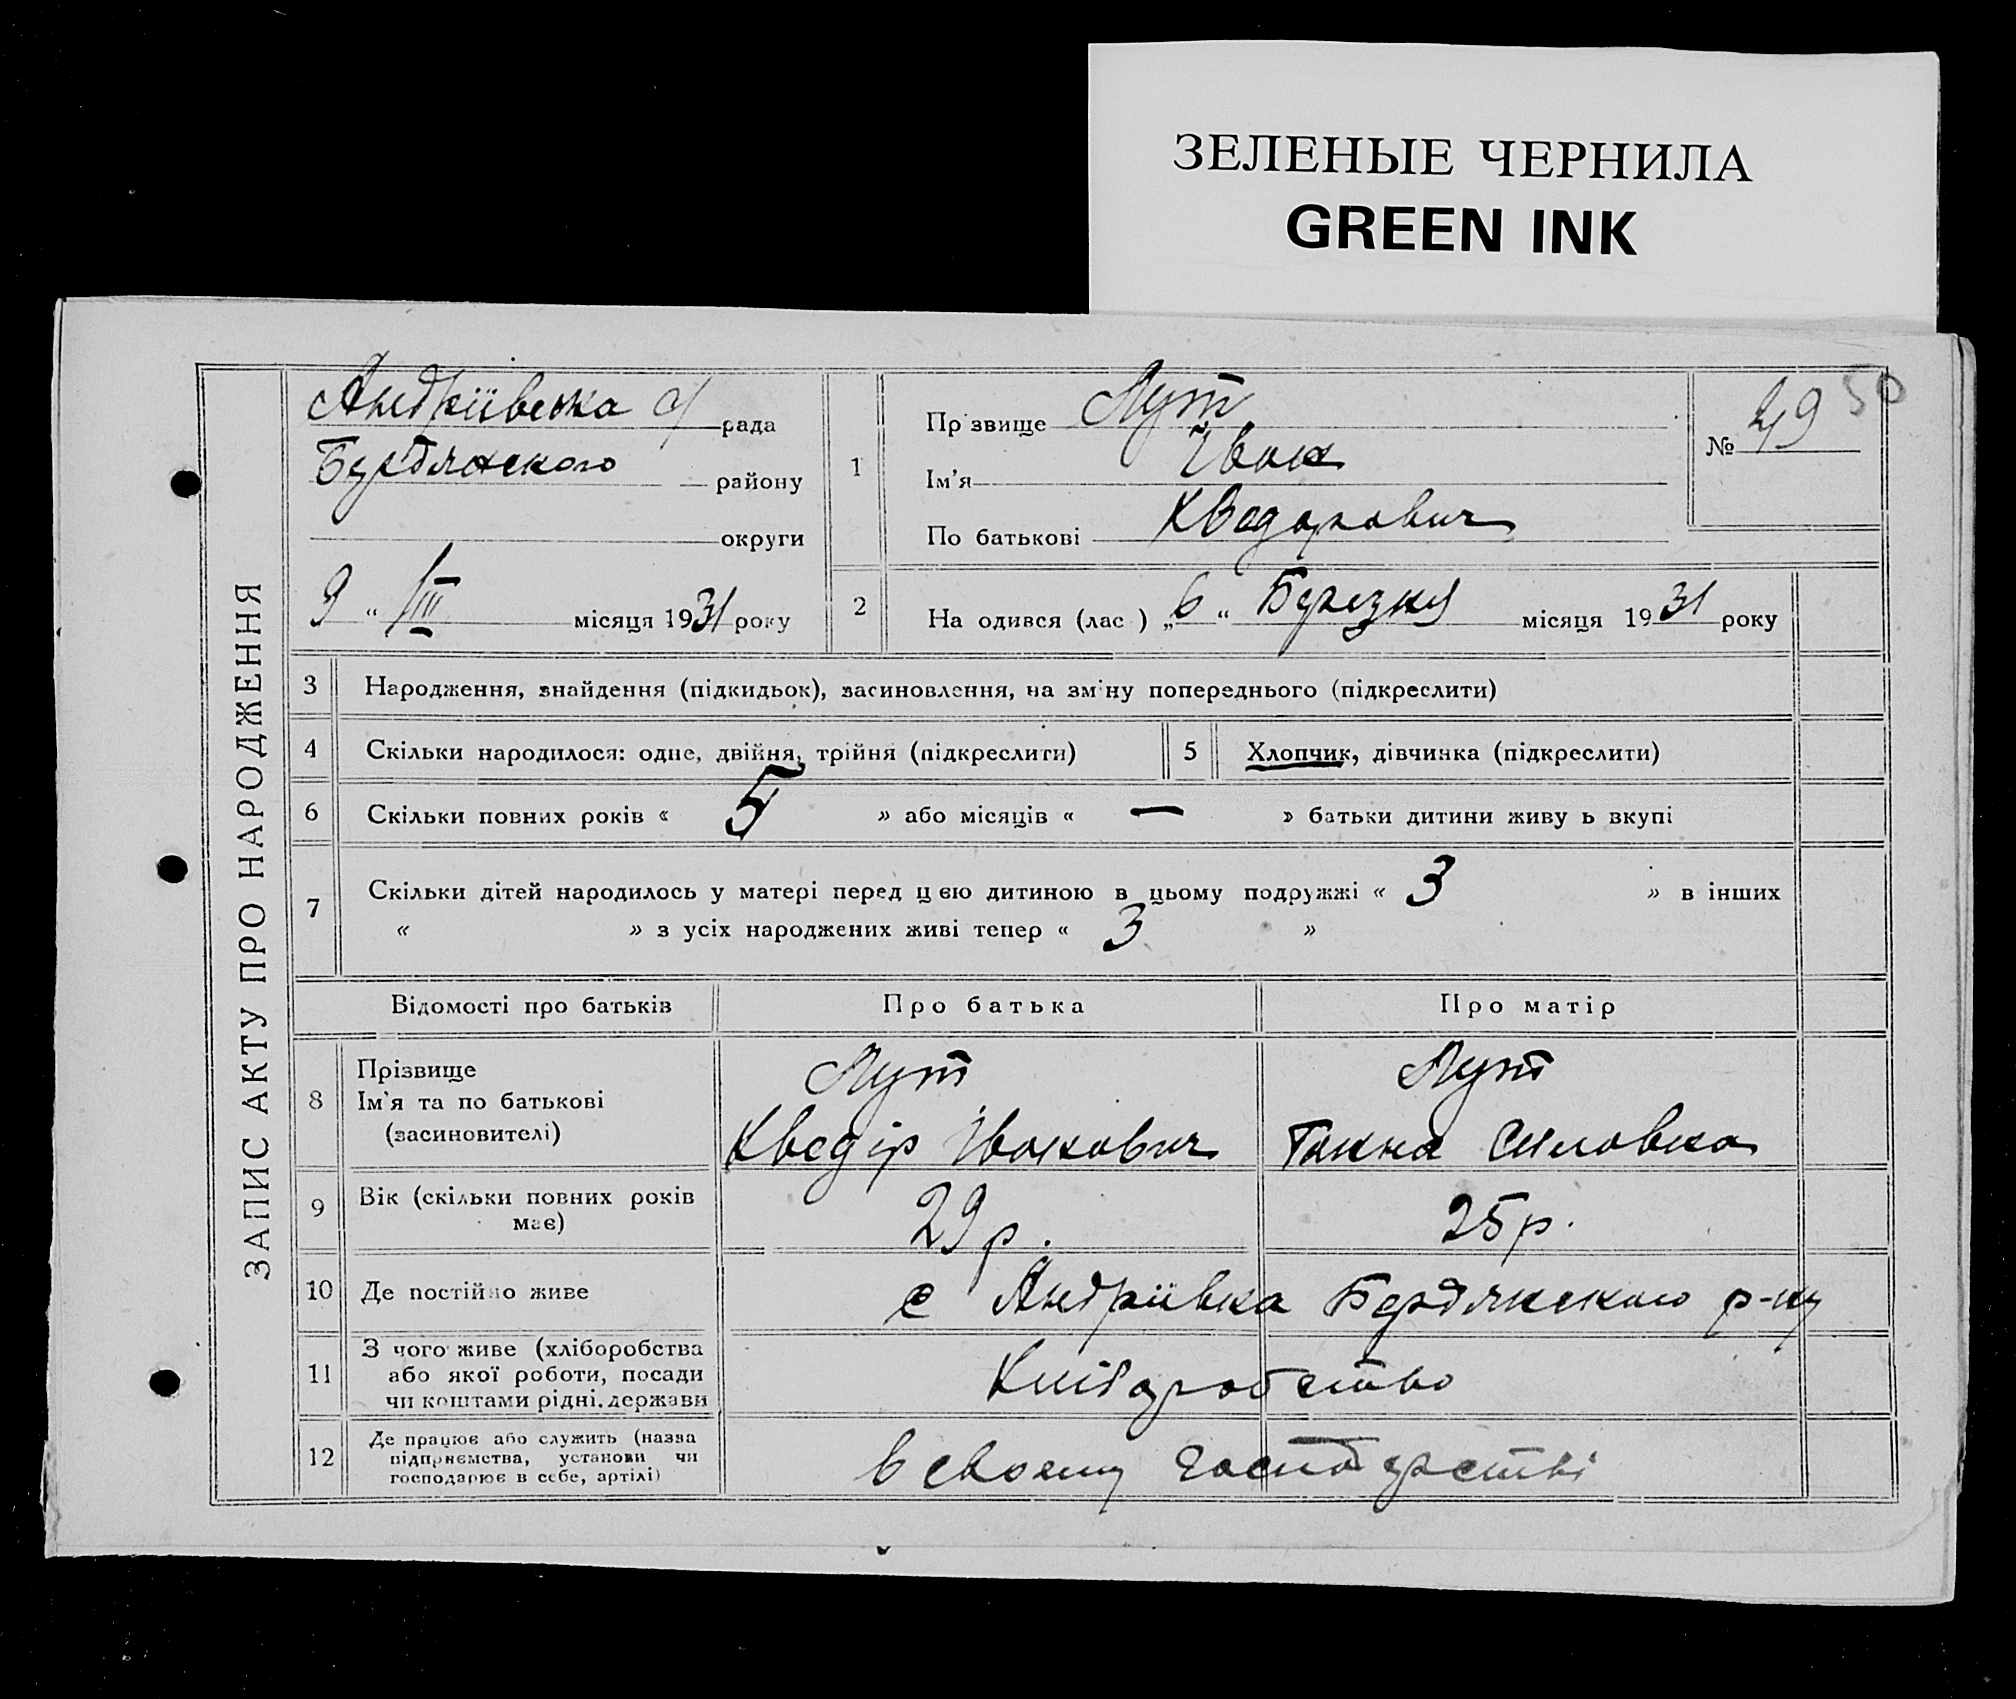 ЗЕЛЕНЫЕ ЧЕРНИЛА
GREEN INK
ЗАПИС АКТУ ПРО НАРОДЖЕННЯ
Андріївська с/ рада
Бердянського району
округи
9 " III місяця 1931 року
1
Прізвище Лут
Ім'я Іван
По батькові Кведорович
№ 49
50
2 На одився (лас ) „6 " Березня місяця 1931 року
3 Народження, знайдення (підкидьок), засиновлення, на зміну попереднього (підкреслити)
4 Скільки народилося: одне, двійня, трійня (підкреслити)
5 Хлопчик, дівчинка (підкреслити)
6 Скільки повних років « 5 » або місяців « — » батьки дитини живу ь вкупі
7 Скільки дітей народилось у матері перед цією дитиною в цьому подружжі « 3 » в інших
« » з усіх народжених живі тепер « 3 »
Відомості про батьків Про батька Про матір
8 Прізвище Лут Лут
Ім'я та по батькові
(засиновителі) Кведір Іванович Ганна Силовна
9 Вік (скільки повних років
має) 29 р. 25 р.
10 Де постійно живе с Андріївка Бердянского р-ну
11 З чого живе (хліборобства
або якої роботи, посади
чи коштами рідні, держави Хліборобство
12 Де працює або служить (назва
підприємства, установи чи
господарює в себе, артілі) в своєму господарстві